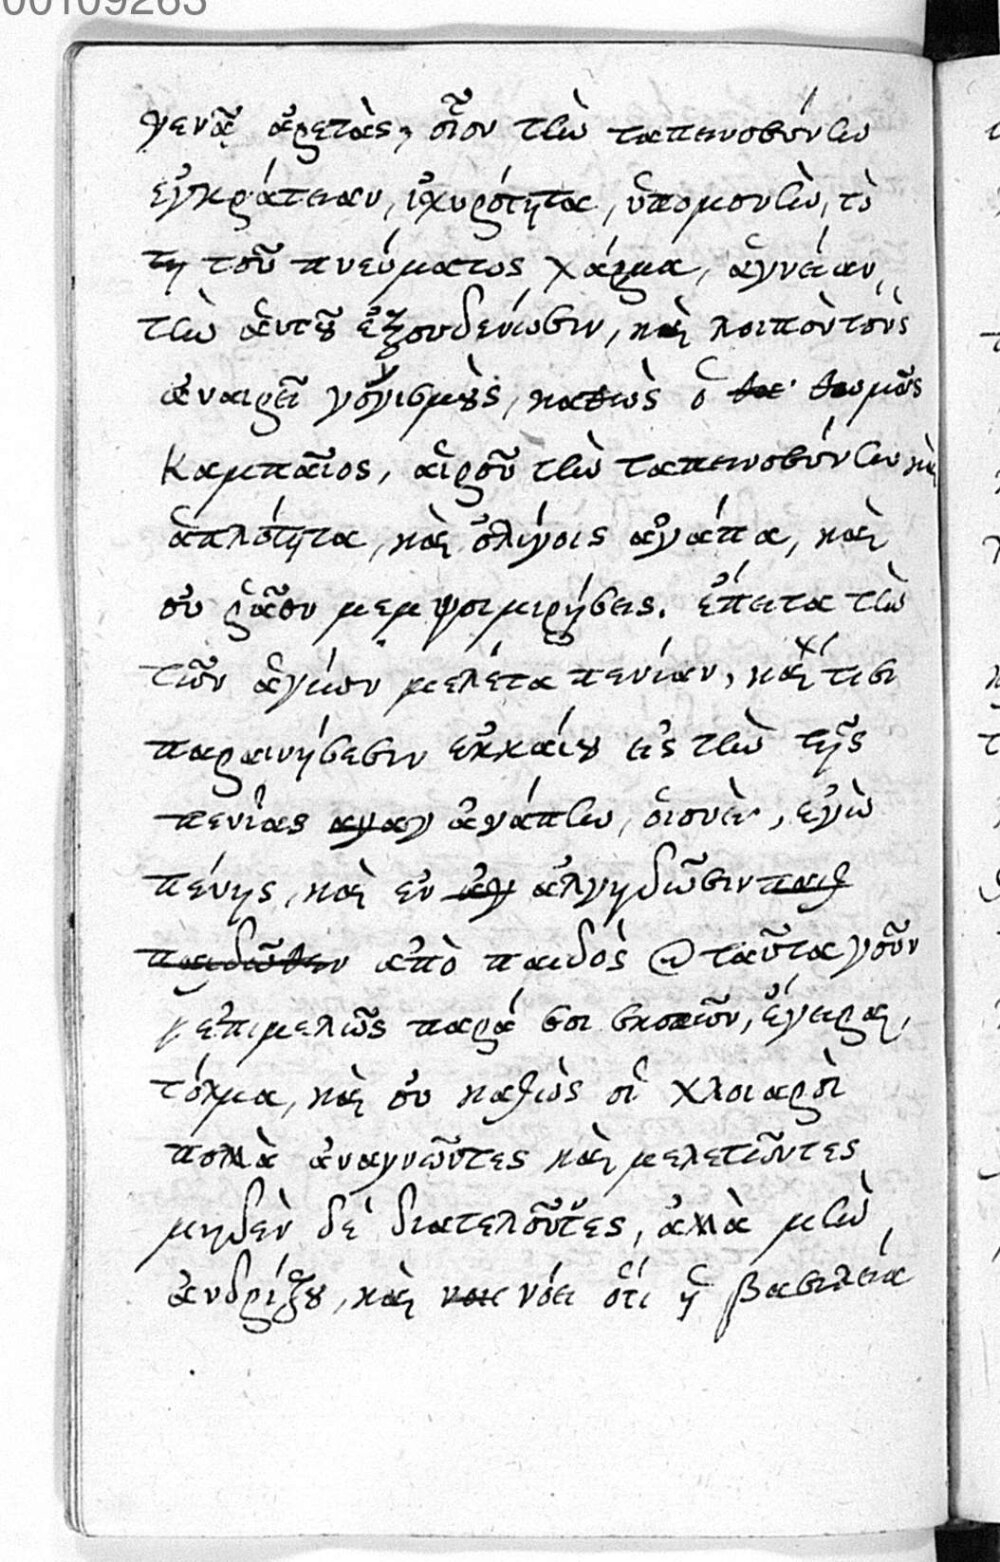 00109263
γενᾷ ἀρετὰς, οἷον τὴν ταπεινοσύνην
ἐγκράτειαν, ἰχυρότητα, ὑπομονὴν, τὸ
τῃ τοῦ πνεύματος χάρμα, ἁγνείαν,
τὴν ἁυτοῦ ἐξουδενίωσιν, καὶ λοιπὸν τοὺς
ἀναιρεῖ γογγισμοὺς, καθὼς ὁ θωμᾶς
Καμπαῖος, αἱροῦ τὴν ταπεινοσύνην καὶ
ἁπλότητα, καὶ ὀλίγοις ἀγάπα, καὶ
οὐ ῥᾶον μεμψοιμιρήσεις. ἔπειτα τὴν
τῶν ἁγίων μελέτα πενίαν, καὶ τισι
παραινήσεσιν ἐκκαίου εἰς τὴν τῆς
πενίας ἀγάπην, ἐγὼ
πένης, καὶ ἐν ἀλγηδῶσιν
ἀπὸ παιδὸς ταῦτα γοῦν
ἐπιμελῶς παρά σοι σκοπῶν, ἔγειραι,
τόλμα, καὶ οὐ καθὼς οἱ χλοιαροὶ
πολλὰ ἀναγνῶντες καὶ μελετῶντες
μηδὲν δὲ διατελοῦντες, ἀλλὰ μὴν
ἀνδρίζου, καὶ νόει ὅτι ἡ βασιλεία